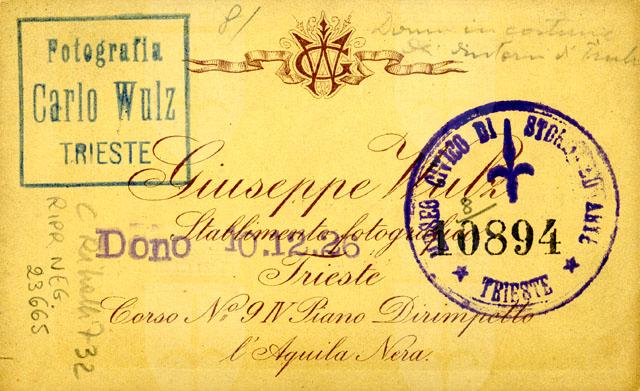 Fotografia
Carlo Wulz
TRIESTE
8/
Donna in costume
di dintorni di Trieste
Giuseppe Wulz
Stabilimento fotografico
Dono 10.12.26
Trieste
Corso Nº 9 IV Piano Dirimpetto
l'Aquila Nera.
MUSEO CIVICO DI STORIA ED ARTE
8/
10894
TRIESTE
RIPR NEG.
23665
7-32